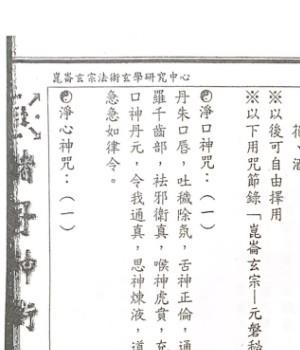 崑崙玄宗法術玄學研究中心
※以後可自由擇用
※以下用咒節錄「崑崙玄宗—元磐秘
☯淨口神咒：（一）
丹朱口唇，吐穢除氛，舌神正倫，通
羅千齒部，祛邪衛真，喉神虎賁，充
口神丹元，令我通真，思神煉液，道
急急如律令。
☯淨心神咒：（一）